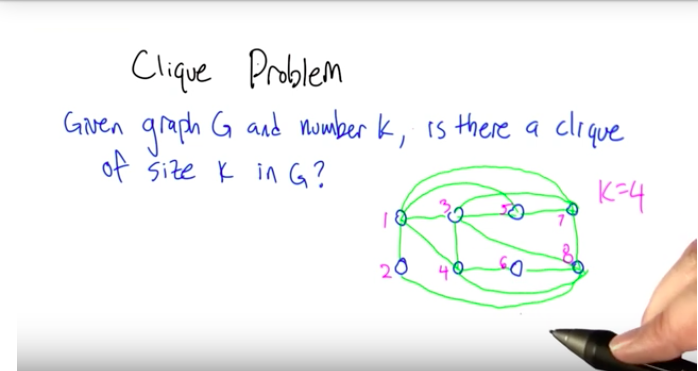 Clique Problem
Given graph G and number k, is there a clique
of size k in G?
K=4
1 3 5 7
2 4 6 8